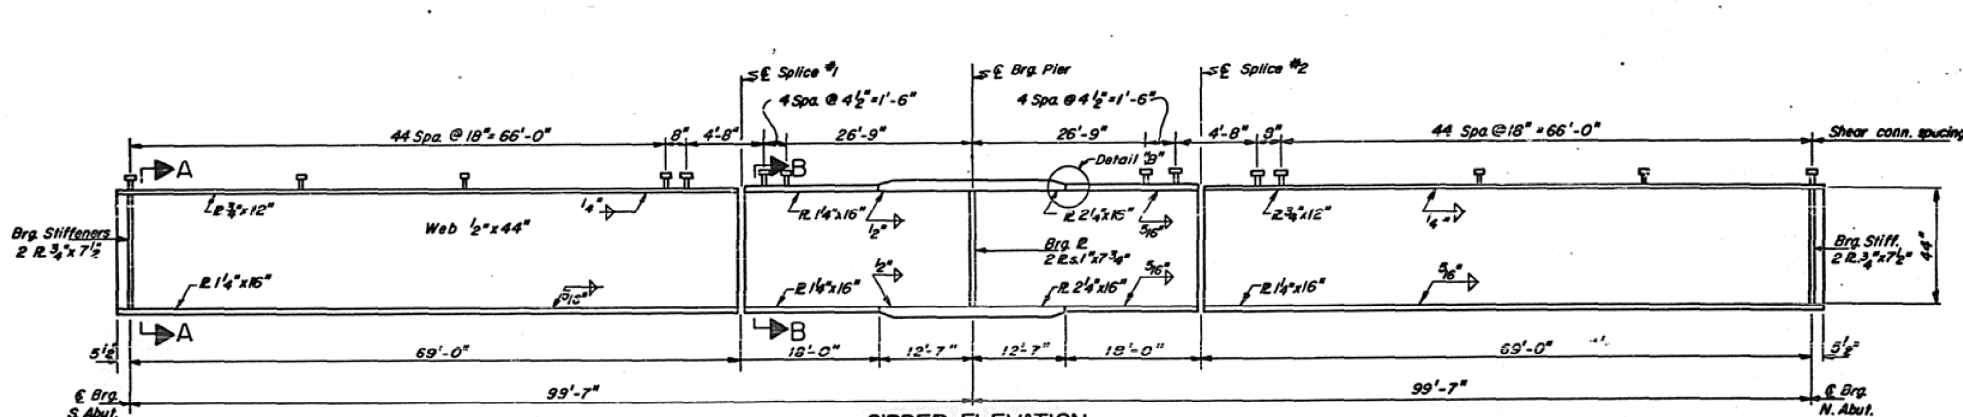 ℄ Splice #1
℄ Brg. Pier
℄ Splice #2
4 Spa. @ 4½" = 1'-6"
4 Spa. @ 4½" = 1'-6"
44 Spa. @ 18" = 66'-0"
8"
4'-8"
26'-9"
26'-9"
4'-8"
8"
44 Spa @ 18" = 66'-0"
Shear conn. spacing
A
B
Detail "B"
℄ ¾" x 12"
¼"
℄ 1¼" x 16"
½"
℄ 2¼" x 16"
5/16"
℄ ¾" x 12"
¼"
Web ½" x 44"
Brg. Stiffeners
2 ℄ ¾" x 7½"
Brg. ℄
2 ℄s. 1" x 7¾"
Brg. Stiff.
2 ℄ ¾" x 7½"
44"
℄ 1¼" x 16"
5/16"
℄ 1¼" x 16"
½"
℄ 2¼" x 16"
5/16"
℄ 1¼" x 16"
5/16"
A
B
5½"
69'-0"
18'-0"
12'-7"
12'-7"
18'-0"
69'-0"
5½"
99'-7"
99'-7"
℄ Brg.
S. Abut.
℄ Brg.
N. Abut.
GIRDER ELEVATION